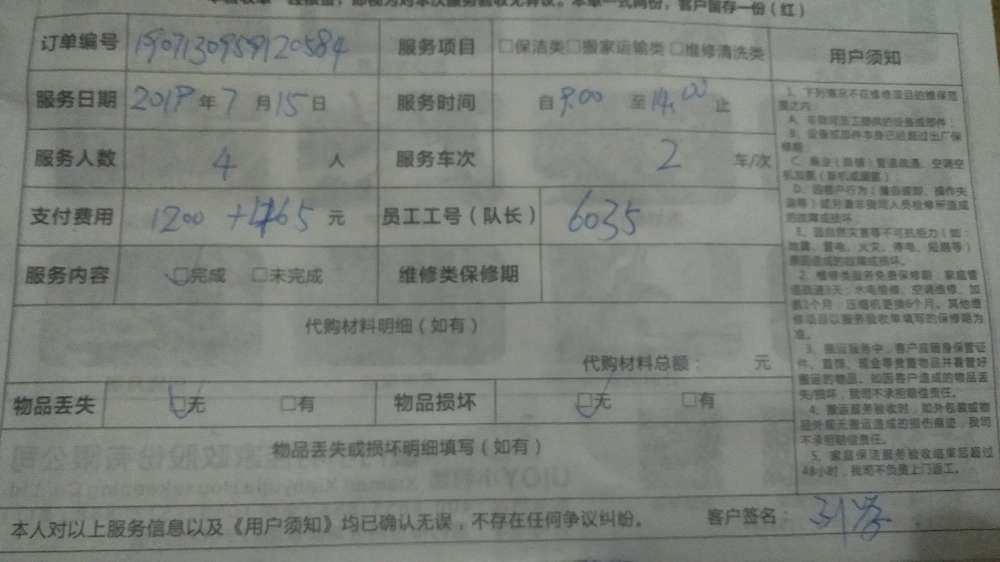 即视为对本次服务验收无异议。本单一式两份，客户留存一份（红）
订单编号 1907130959120584 服务项目 □保洁类□搬家运输类 □维修清洗类 用户须知
服务日期 2019年7月15日 服务时间 自9.00 至14.00止
服务人数 4 人 服务车次 2 车/次
支付费用 1200 +1165 元 员工工号（队长） 6035
服务内容 □完成 □未完成 维修类保修期
代购材料明细（如有）
代购材料总额： 元
物品丢失 □无 □有 物品损坏 □无 □有
物品丢失或损坏明细填写（如有）
本人对以上服务信息以及《用户须知》均已确认无误，不存在任何争议纠纷。 客户签名：
1、下列情况不在维修项目的维保范
围之内：
A、非我司员工提供的设备或部件；
B、设备或部件本身已经超过出厂保
修期；
C、商业（店铺）管道疏通、空调空
D、因客户行为（擅自装卸、操作失
误等）或另请非我司人员检修所造成
的故障或损坏；
E、因自然灾害等不可抗拒力（如：
地震、雷电、火灾、停电、短路等）
原因造成的故障或损坏。
2、维修类服务免费保修期：家庭管
道疏通3天；水电维修、空调维修、加
氨1个月；压缩机更换6个月。其他维
修项目以服务验收单填写的保修期为
准。
3、搬运服务中，客户应随身保管证
件、首饰、现金等贵重物品并看管好
搬运的物品。如因客户造成的物品丢
失/损坏，我司不承担赔偿责任。
4、搬运服务验收时，如外包装或物
品外观无搬运造成的损伤痕迹，我司
不承担赔偿责任。
5、家庭保洁服务验收结束后超过
48小时，我司不负责上门返工。